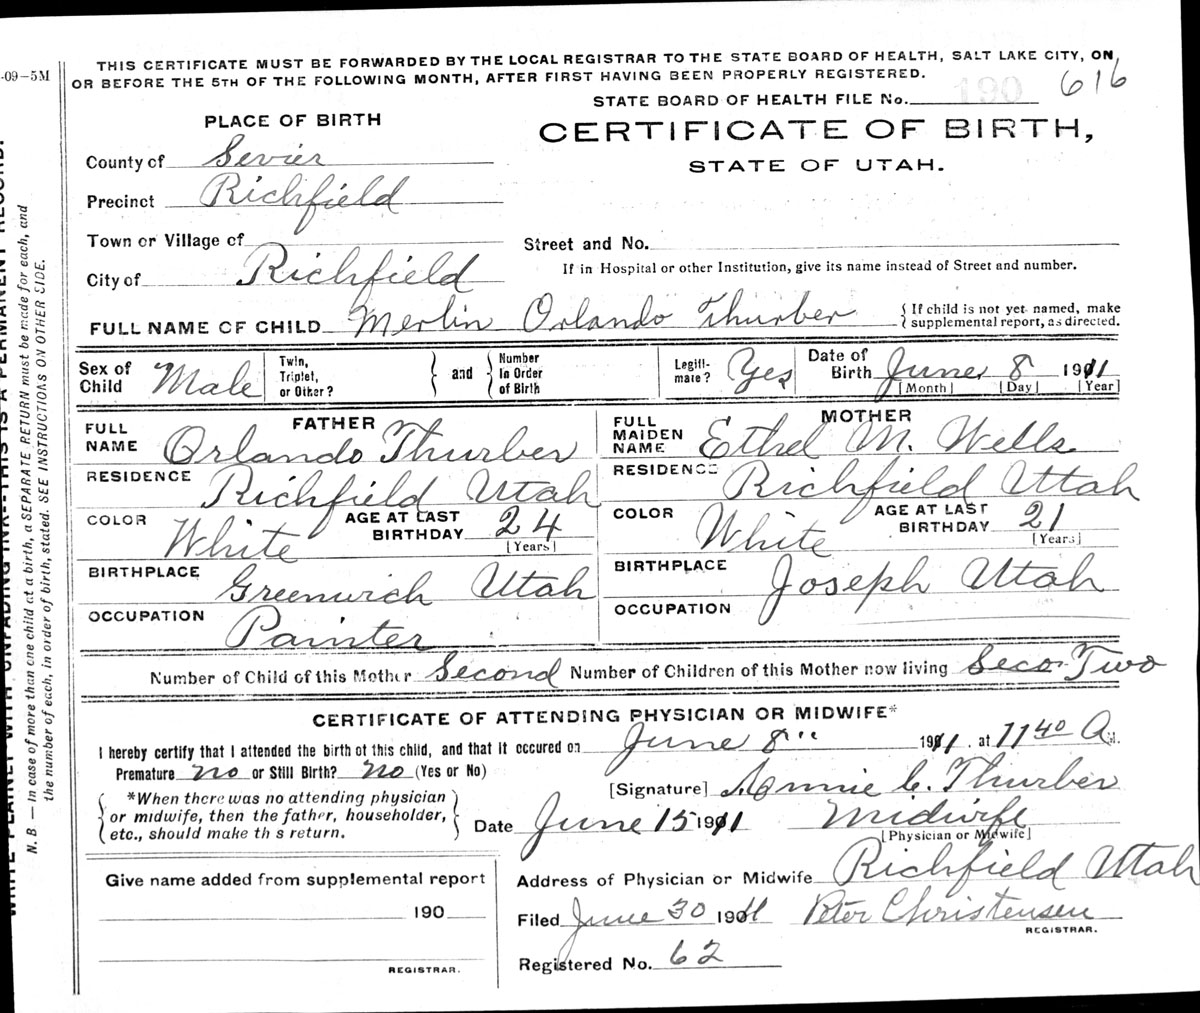 -09-5M
THIS CERTIFICATE MUST BE FORWARDED BY THE LOCAL REGISTRAR TO THE STATE BOARD OF HEALTH, SALT LAKE CITY, ON
OR BEFORE THE 5TH OF THE FOLLOWING MONTH, AFTER FIRST HAVING BEEN PROPERLY REGISTERED.
STATE BOARD OF HEALTH FILE No. 190 616
PLACE OF BIRTH
CERTIFICATE OF BIRTH,
STATE OF UTAH.
County of Sevier
Precinct Richfield
Town or Village of
Street and No.
City of Richfield
If in Hospital or other Institution, give its name instead of Street and number.
FULL NAME OF CHILD Merlin Orlando Thurber { If child is not yet named, make
supplemental report, as directed.
Sex of Child Male
Twin, Triplet, or Other?
and
Number In Order of Birth
Legiti-mate? Yes
Date of Birth June 8 1911
[Month] [Day] [Year]
FATHER
FULL NAME Orlando Thurber
MOTHER
FULL MAIDEN NAME Ethel M. Wells
RESIDENCE Richfield Utah
RESIDENCE Richfield Utah
COLOR White AGE AT LAST BIRTHDAY 24 [Years]
COLOR White AGE AT LAST BIRTHDAY 21 [Years]
BIRTHPLACE Greenwich Utah
BIRTHPLACE Joseph Utah
OCCUPATION Painter
OCCUPATION
Number of Child of this Mother Second Number of Children of this Mother now living Seco Two
CERTIFICATE OF ATTENDING PHYSICIAN OR MIDWIFE*
I hereby certify that I attended the birth of this child, and that it occured on June 8" 1911. at 11 40 A M.
Premature no or Still Birth? No (Yes or No)
[Signature] Annie C. Thurber
*When there was no attending physician
or midwife, then the father, householder,
etc., should make th s return.
Date June 15 1911 Midwife
[Physician or Midwife]
Give name added from supplemental report
Address of Physician or Midwife Richfield Utah
190
Filed June 30 1911 Peter Christensen
REGISTRAR.
REGISTRAR.
Registered No. 62
WRITE PLAINLY WITH UNFADING INK--THIS IS A PERMANENT RECORD.
N. B. — In case of more than one child at a birth, a SEPARATE RETURN must be made for each, and
the number of each, in order of birth, stated. SEE INSTRUCTIONS ON OTHER SIDE.